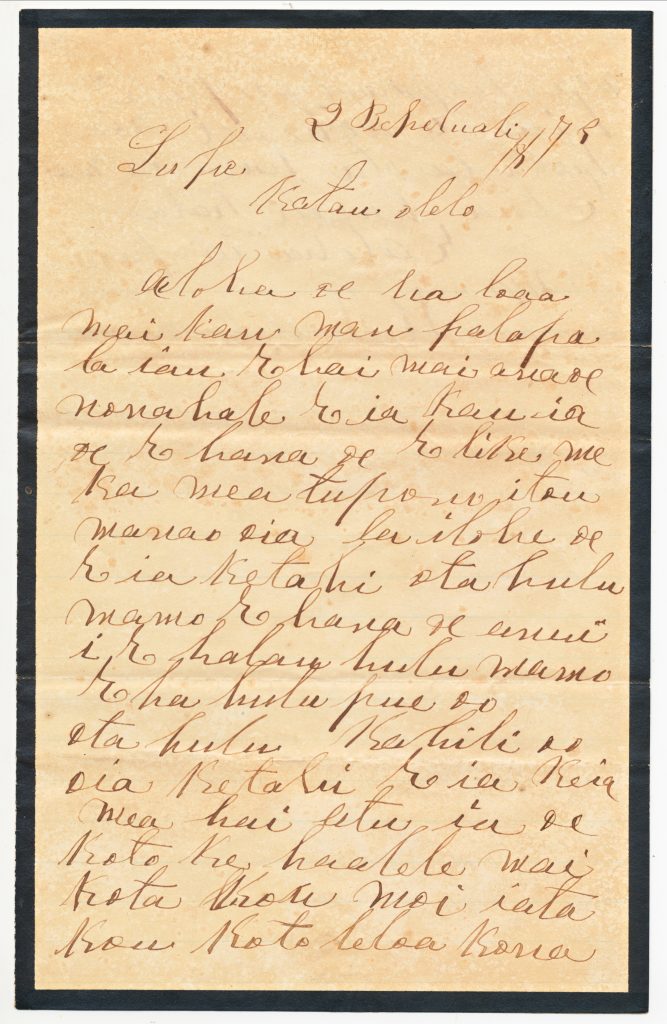 2 Bepeluali / 18/78
Lufe
Katau olelo
Aloha oe ua loaa
mai kau mau palapa
la iau E hai mai ana oe
nonahale E ia kau ia
oe E hana oe E like me
ka mea tupono itou
manao oia la ilohe oe
E ia ketahi ota hulu
mamo E hana oe a nui
i E halau hulu mamo
E ha hulu pue oo
ota hulu Kahili oo
oia ketahi E ia keia
mea hai atu ia oe
koto ke haalele mai
kota kou moi iata
kou koto leloa kona